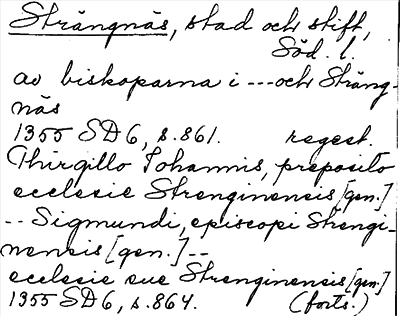 Strängnäs, stad och stift,
Söd. l.
av biskoparna i --- och Sträng-
näs
1355 SD 6, s. 861. regest.
Thirgillo Iohannis, preposito
ecclesie Strenginensis [gen.]
-- Sigmundi, episcopi Strengi-
nensis [gen.] --
ecclesie sue Strenginensis [gen.]
1355 SD 6, s. 864. (forts.)